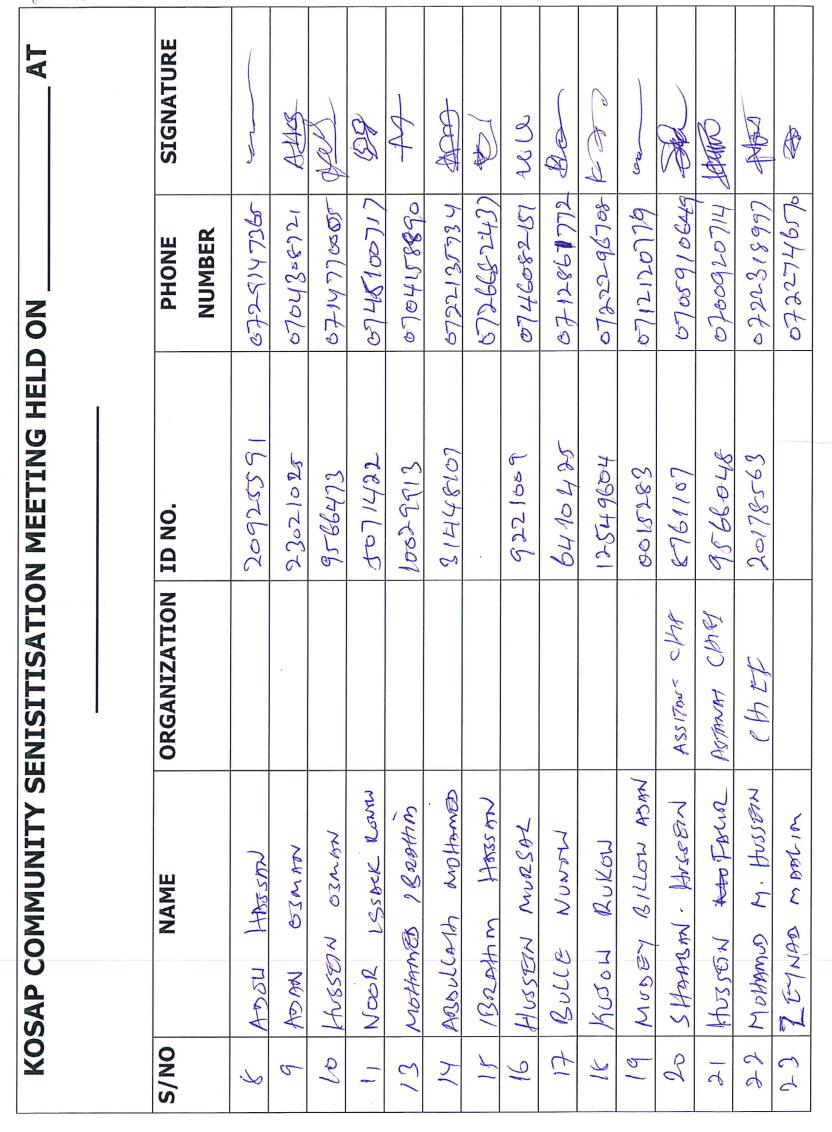 KOSAP COMMUNITY SENISITISATION MEETING HELD ON ________ AT
________
S/NO NAME ORGANIZATION ID NO. PHONE NUMBER SIGNATURE
8 ADOW HASSAN 20925591 0729147365
9 ADAN OSMAN 23021025 0704308721
10 HUSSEIN OSMAN 9566473 0714770005
11 NOOR ISSACK 5071422 0745100717
13 MOHAMED IBRAHIM 10029913 0704158890
14 ABDULLAHI MOHAMED 31448107 0722135734
15 IBRAHIM HASSAN 0726682437
16 HUSSEIN MURSAL 9221009 0746082151
17 BULLE NUNOW 6410425 0712861772
18 KUSOW RUKOW 12549604 0722296708
19 MUDEY BILLOW ADAN 0015283 0712120779
20 SHAABAN. HUSSEIN 8761107 0705910649
21 HUSSEIN 9566048 0700920714
22 MOHAMUD M. HUSSEIN CHIEF 20178563 0722318997
23 ZEYNAB MAALIM 0722746570